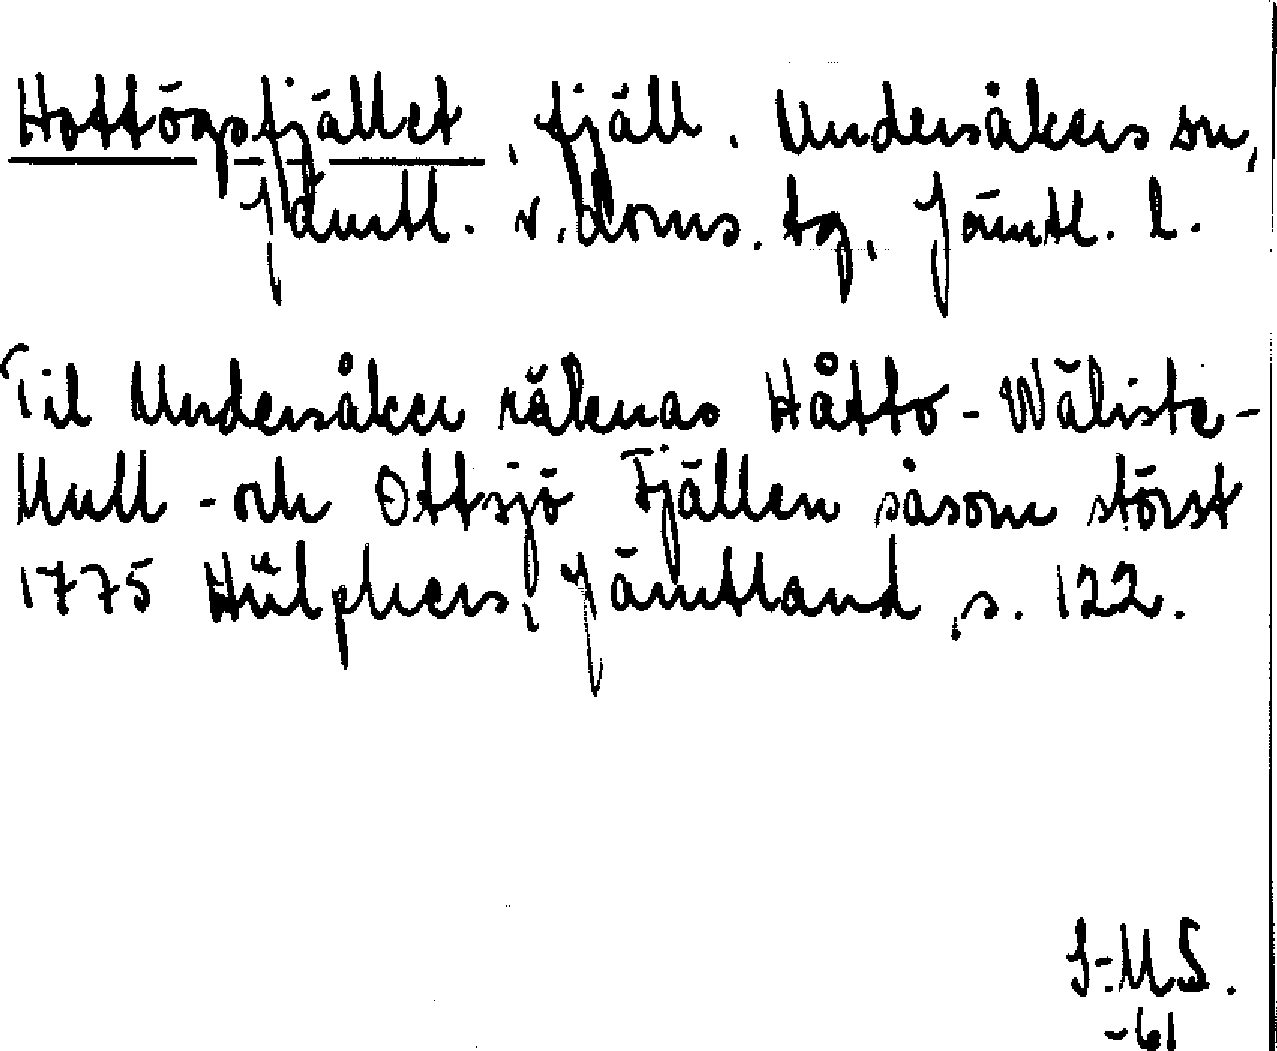 Hottögsfjället, fjäll. Undersåkers sn,
Jämtl. v. doms. tg, Jämtl. l.
Til Undersåker räknas Håtto-Wäliste-
Mull-och Ottsjö Fjällen såsom störst
1775 Hülphers, Jämtland, s. 122.
I-MS.
-61